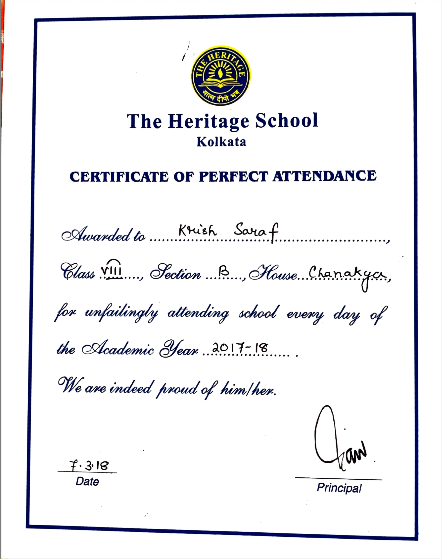 THE HERITAGE
The Heritage School
Kolkata
CERTIFICATE OF PERFECT ATTENDANCE
Awarded to Krish Saraf,
Class VIII, Section B, House Chanakya,
for unfailingly attending school every day of
the Academic Year 2017-18.
We are indeed proud of him/her.
7.3.18
Date
Principal